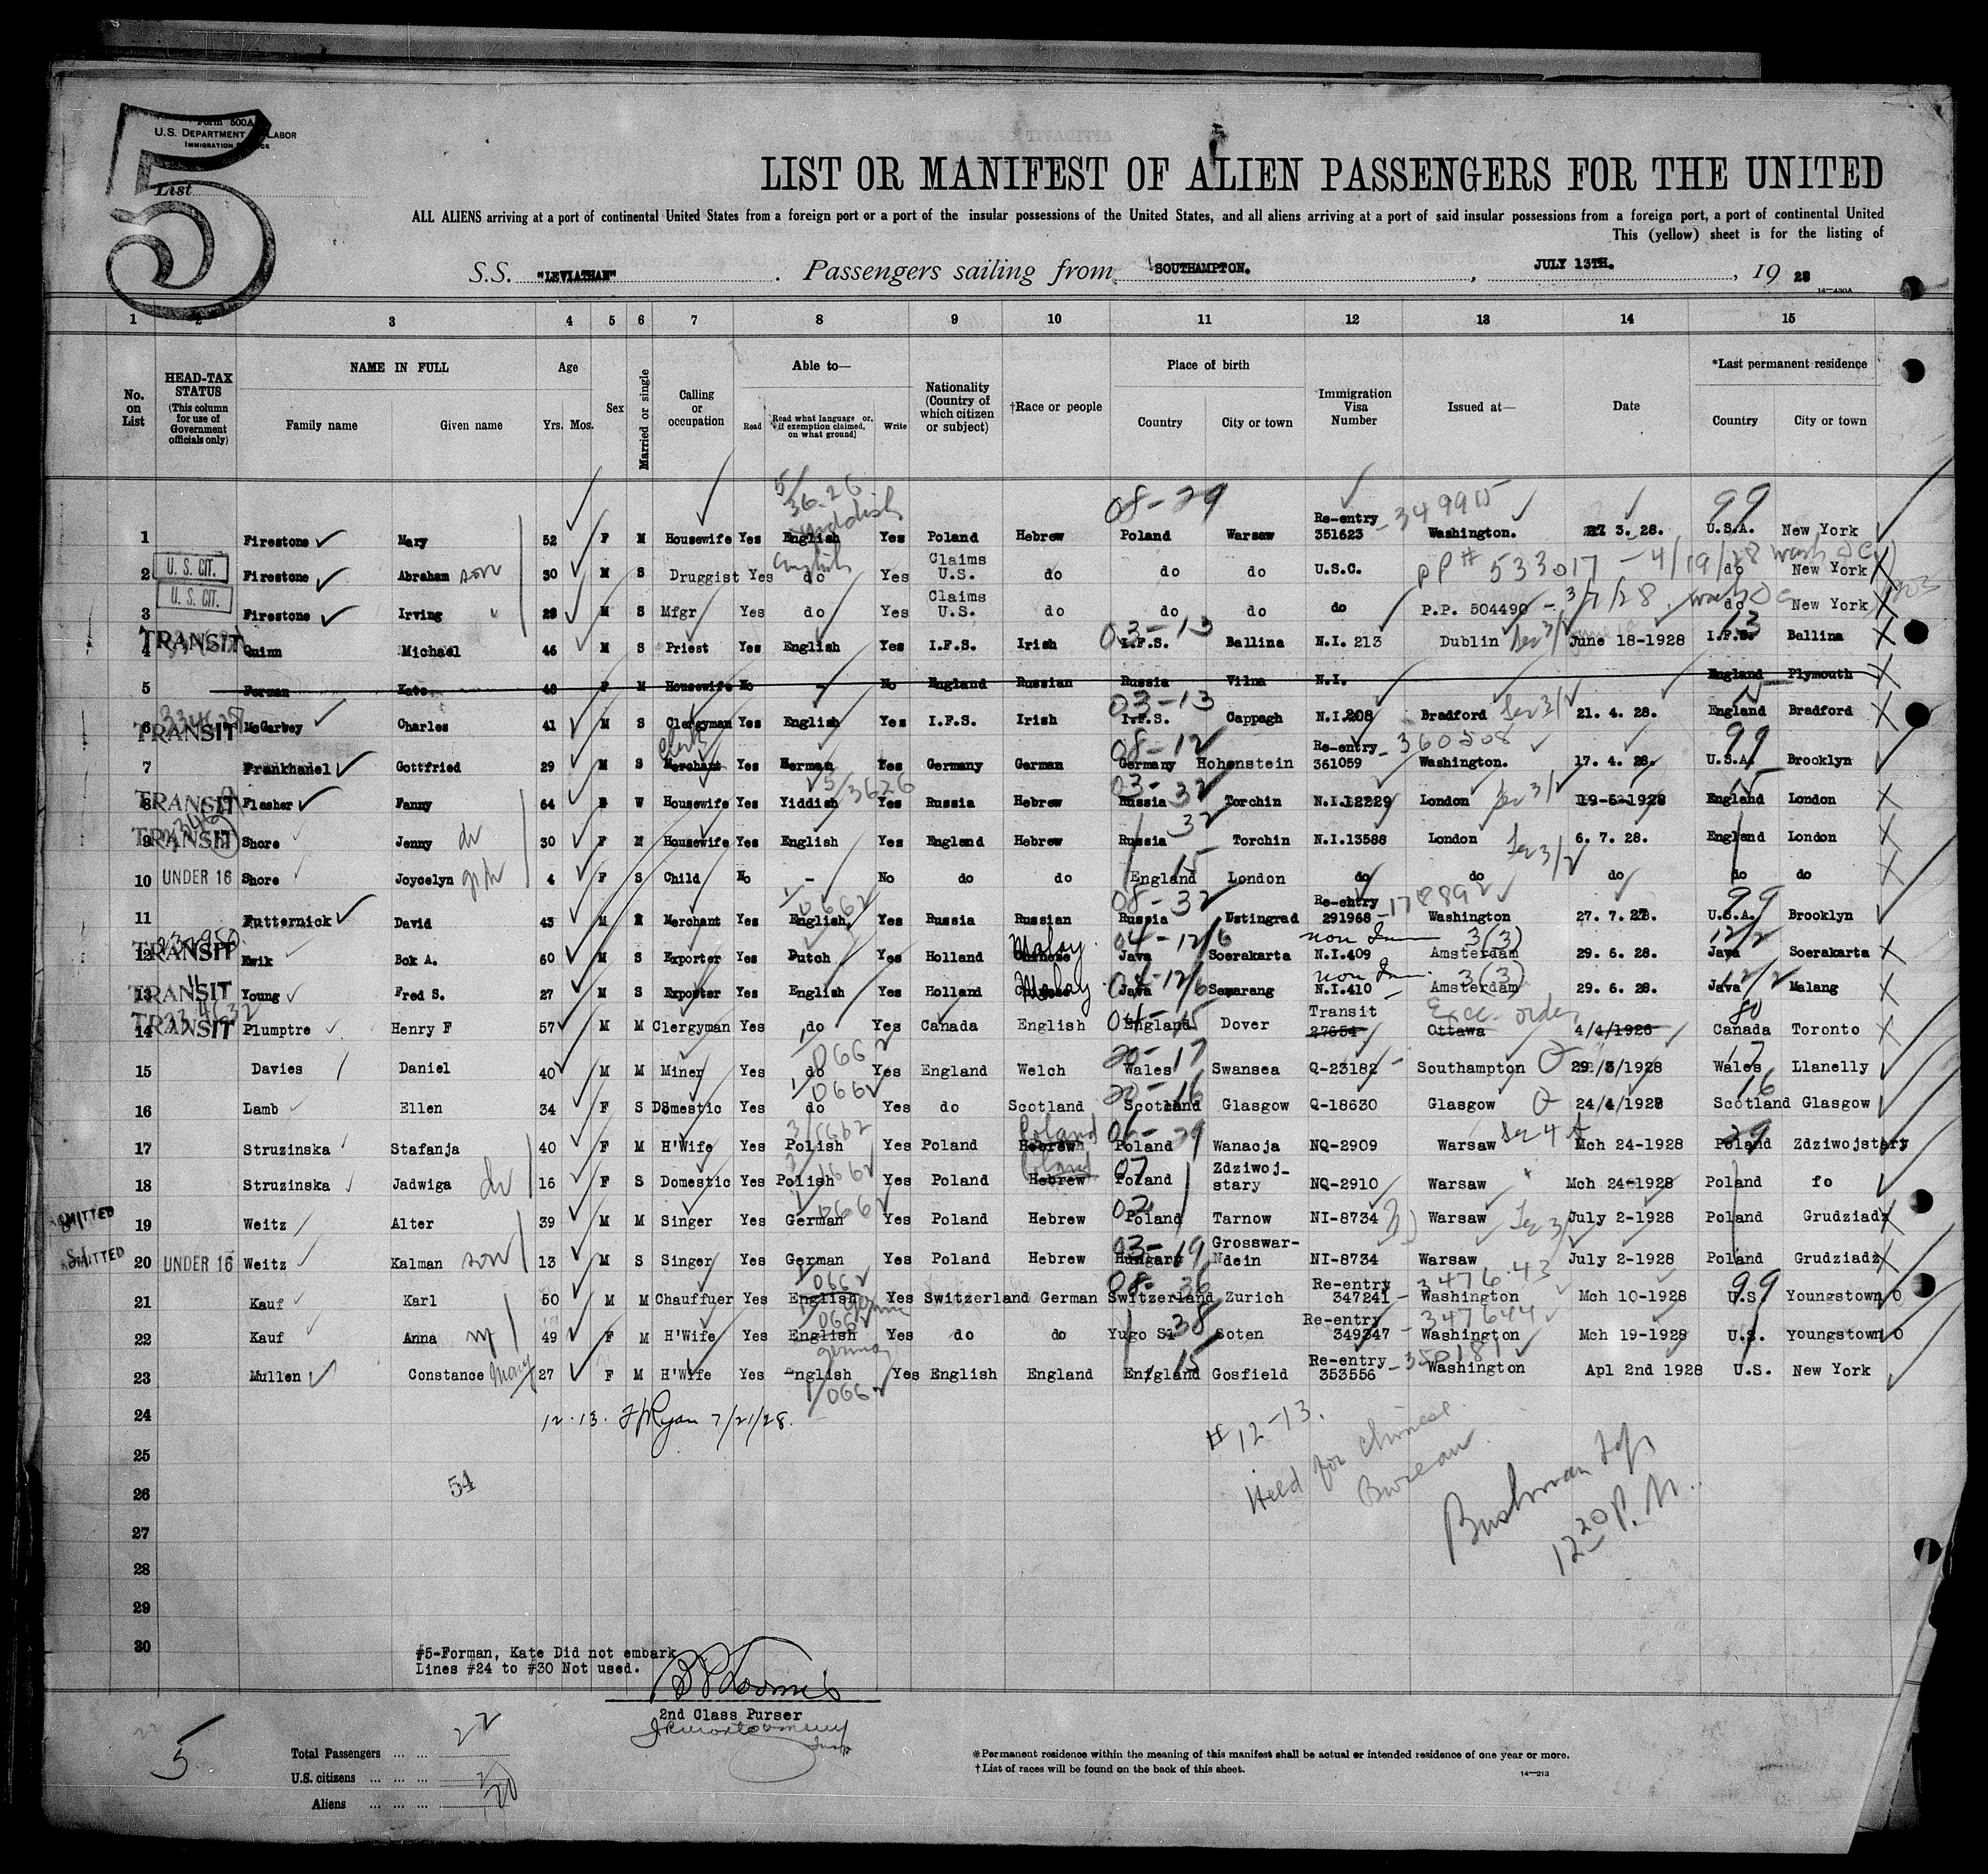 5
Form 500A
U.S. DEPARTMENT LABOR
IMMIGRATION
List
LIST OR MANIFEST OF ALIEN PASSENGERS FOR THE UNITED
ALL ALIENS arriving at a port of continental United States from a foreign port or a port of the insular possessions of the United States, and all aliens arriving at a port of said insular possessions from a foreign port, a port of continental United
This (yellow) sheet is for the listing of
S.S. "LEVIATHAN" . Passengers sailing from SOUTHAMPTON. , JULY 13TH. , 19 28
14-430A
1 2 3 4 5 6 7 8 9 10 11 12 13 14 15
No. on List
HEAD-TAX STATUS (This column for use of Government officials only)
NAME IN FULL Family name Given name
Age Yrs. Mos.
Sex
Married or single
Calling or occupation
Able to— Read Read what language or, if exemption claimed, on what ground] Write
Nationality (Country of which citizen or subject)
†Race or people
Place of birth Country City or town
Immigration Visa Number
Issued at—
Date
*Last permanent residence Country City or town
5/36-26 Yiddish 08-29 349915 99
1 Firestone Mary 52 F M Housewife Yes English Yes Poland Hebrew Poland Warsaw Re-entry 351623 Washington. 27 3. 28. U.S.A. New York
2 U. S. CIT. Firestone Abraham son 30 M S Druggist Yes do English Yes Claims U.S. do do do U.S.C. PP# 533017 - 4/19/28 Wash DC do New York
3 U. S. CIT. Firestone Irving 28 M S Mfgr Yes do Yes Claims U.S. do do do do P.P. 504490 - 3/7/28 Wash DC do New York
4 TRANSIT Quinn Michael 46 M S Priest Yes English Yes I.F.S. Irish 03-13 I.F.S. Ballina N.I. 213 Dublin Sec 3/2 June 18-1928 I.F.S. 13 Ballina
5 Forman Kate. 48 F M Housewife No - No England Russian Russia Vilna N.I. England Plymouth
6 TRANSIT McGarvey Charles 41 M S Clergyman Yes English Yes I.F.S. Irish 03-13 I.F.S. Cappagh N.I.208 Bradford Sec 3/2 21. 4. 28. England 15 Bradford
7 Frankhanel Gottfried 29 M S Merchant Clerk Yes German Yes Germany German 08-12 Germany Hohenstein Re-entry 361059 - 360508 Washington. 17. 4. 28. U.S.A. 99 Brooklyn
8 TRANSIT Flasher Fanny 64 F W Housewife Yes Yiddish 5/3626 Yes Russia Hebrew 03-32 Russia Torchin N.I.12229 London Sec 3/2 19-6-1928 England 15 London
9 TRANSIT Shore Jenny dr 30 F M Housewife Yes English Yes England Hebrew Russia 32 Torchin N.I.13588 London Sec 3/2 6. 7. 28. England London
10 UNDER 16 Shore Joycelyn 4 F S Child No - No do do England 15 London do do do do do
11 Futternick David 43 M M Merchant Yes English, 1/0662 Yes Russia Russian 08-32 Russia Ustingrad Re-entry 291968 - 178892 Washington 27. 7. 27. U.S.A. 99 Brooklyn
12 TRANSIT Kwik Bok A. 60 M S Exporter Yes Dutch Yes Holland Chinese Malay. 04-12/6 Java Soerakarta non Im N.I.409 3(3) Amsterdam 29. 6. 28. Java 12/2 Soerakarta
13 TRANSIT Young Fred S. 27 M S Exporter Yes English Yes Holland Chinese Malay 04-12/6 Java Semarang non Im. N.I.410 3(3) Amsterdam 29. 6. 28. Java 12/2 Malang
14 TRANSIT Plumptre Henry F 57 M M Clergyman Yes do Yes Canada English 04-15 England Dover Transit 27654 Exec. order Ottawa 4/4/1928 Canada 80 Toronto
15 Davies Daniel 40 M M Miner Yes do 1/0662 Yes England Welch 20-17 Wales Swansea Q-23182 Southampton Q 29/3/1928 Wales 17 Llanelly
16 Lamb Ellen 34 F S Domestic Yes do 1/0662 Yes do Scotland 20-16 Scotland Glasgow Q-18630 Glasgow Q 24/4/1928 Scotland 16 Glasgow
17 Struzinska Stafanja 40 F M H'Wife Yes Polish 3/0662 Yes Poland Hebrew Poland 06-29 Poland Wanacja NQ-2909 Warsaw Sec 4 Mch 24-1928 Poland 29 Zdziwojstary
18 Struzinska Jadwiga dr 16 F S Domestic Yes Polish 3/0662 Yes Poland Hebrew Poland 07 Poland Zdziwoj-stary NQ-2910 Warsaw Mch 24-1928 Poland fo
19 ADMITTED Weitz Alter 39 M M Singer Yes German 1/0662 Yes Poland Hebrew 03 Poland Tarnow NI-8734 Warsaw Sec 3/ July 2-1928 Poland Grudziadz
20 ADMITTED UNDER 16 Weitz Kalman son 13 M S Singer Yes German Yes Poland Hebrew 03-19 Hungary Grosswar-Ndein NI-8734 Warsaw July 2-1928 Poland Grudziadz
21 Kauf Karl 50 M M Chauffuer Yes English 1/0662 Yes Switzerland German 08-36 Switzerland Zurich Re-entry 347241 - 347643 Washington Mch 10-1928 U.S. 99 Youngstown O
22 Kauf Anna wf 49 F M H'Wife Yes English 0662 German Yes do do Yugo Sl 38 Soten Re-entry 349347 - 347644 Washington Mch 19-1928 U.S. Youngstown O
23 Mullen Constance Mary 27 F M H'Wife Yes English 1/0662 Yes English England England 15 Gosfield Re-entry 353556 - 350181 Washington Apl 2nd 1928 U.S. New York
24
12.13. Ryan 7/21/28.
# 12-13.
Held for Chinese
Bureau
25
26 54
Bushman
12 20 P.M.
27
28
29
30
#5-Forman, Kate Did not embark
Lines #24 to #30 Not used.
2nd Class Purser
5
Total Passengers ... ... 22
U.S. citizens ... ... ... 2
Aliens ... ... ... 20
*Permanent residence within the meaning of this manifest shall be actual or intended residence of one year or more.
†List of races will be found on the back of this sheet.
14-213